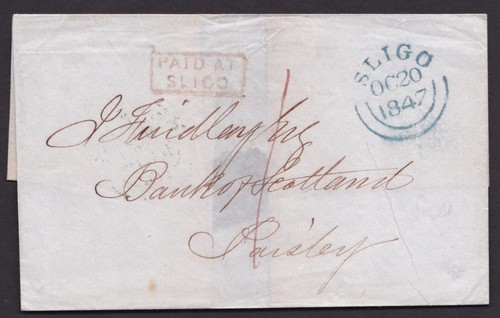 PAID AT
SLIGO
SLIGO
OC20
1847
J Findlay Esq
Bank of Scotland
Paisley